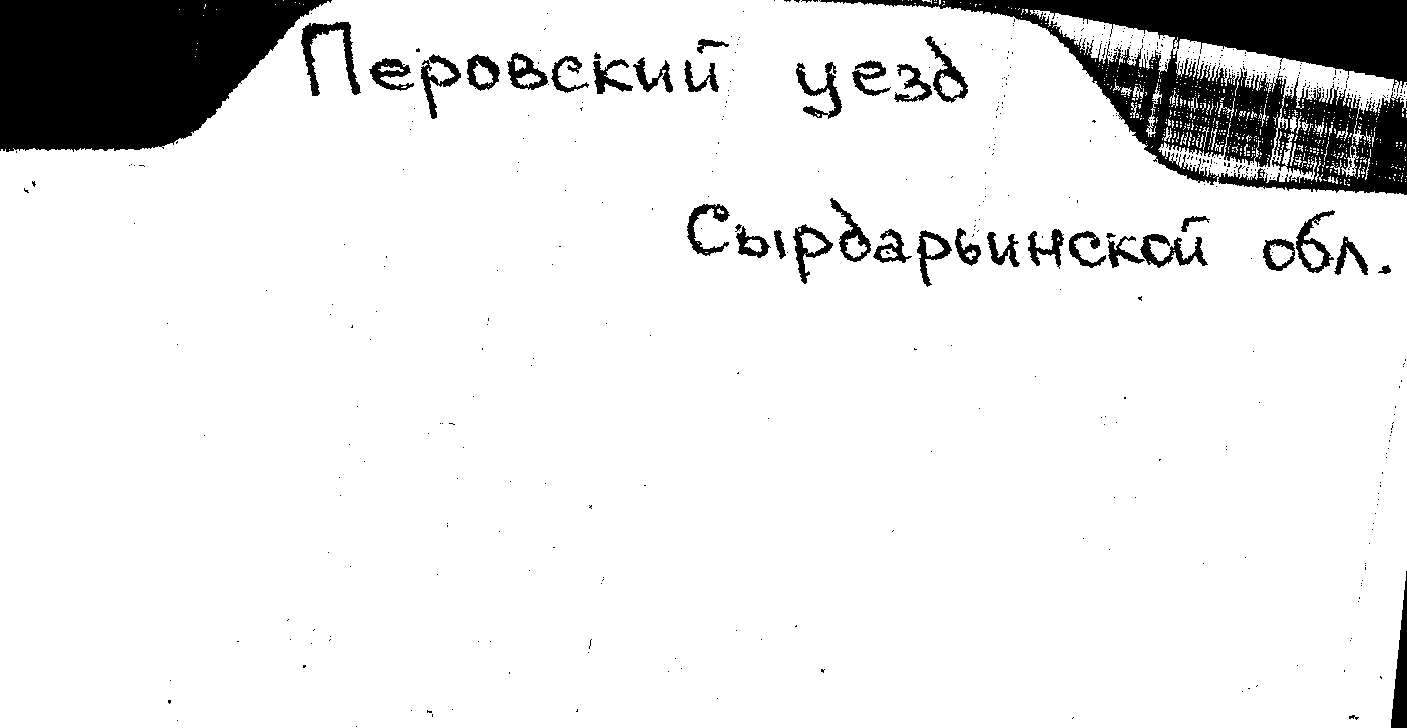 Перовский уезд
Сырдарьинской обл.